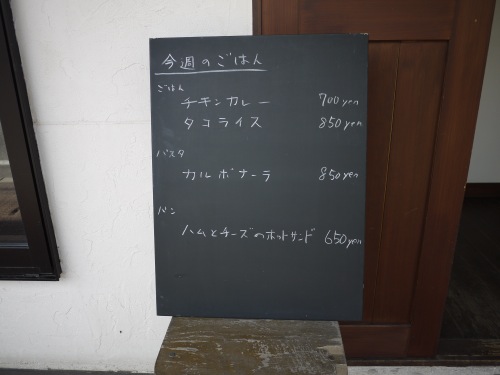 今週のごはん
ごはん
チキンカレー 700yen
タコライス 850yen
パスタ
カルボナーラ 850yen
パン
ハムとチーズのホットサンド 650yen